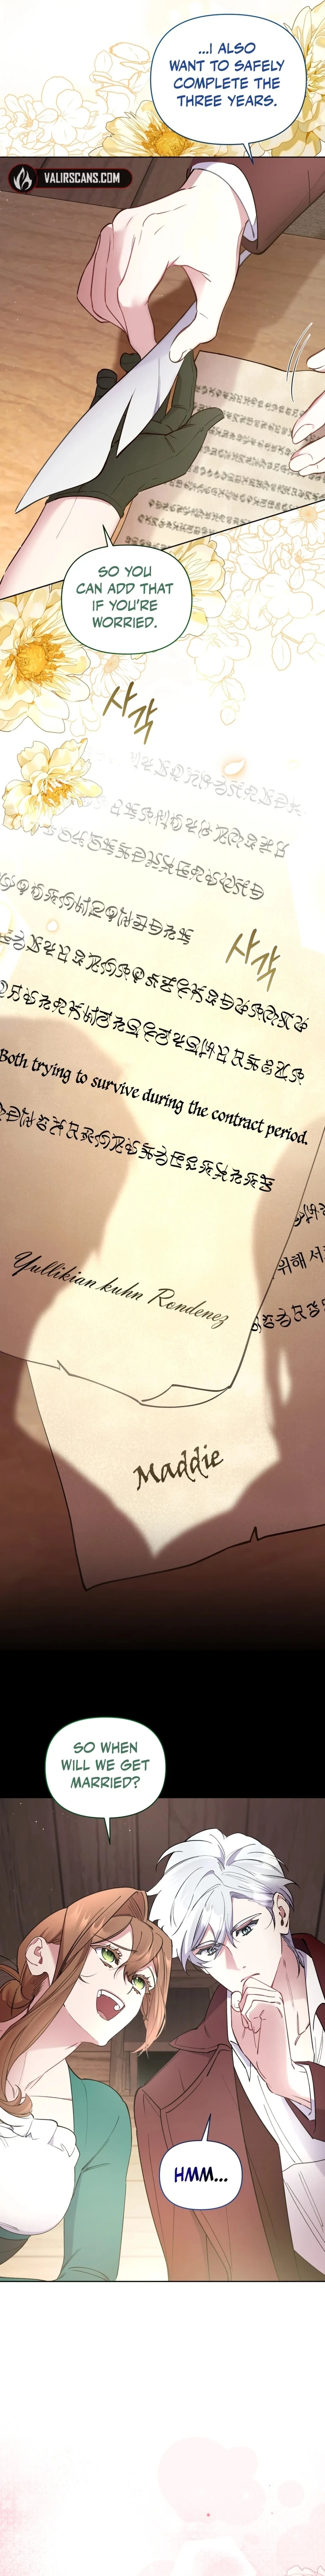 ...I ALSO
WANT TO SAFELY
COMPLETE THE
THREE YEARS.
VALIRSCANS.COM
SO YOU
CAN ADD THAT
IF YOU'RE
WORRIED.
사각
사각
Both trying to survive during the contract period.
위해 서
Yullikian kuhn Rondenez
Maddie
SO WHEN
WILL WE GET
MARRIED?
HMM...